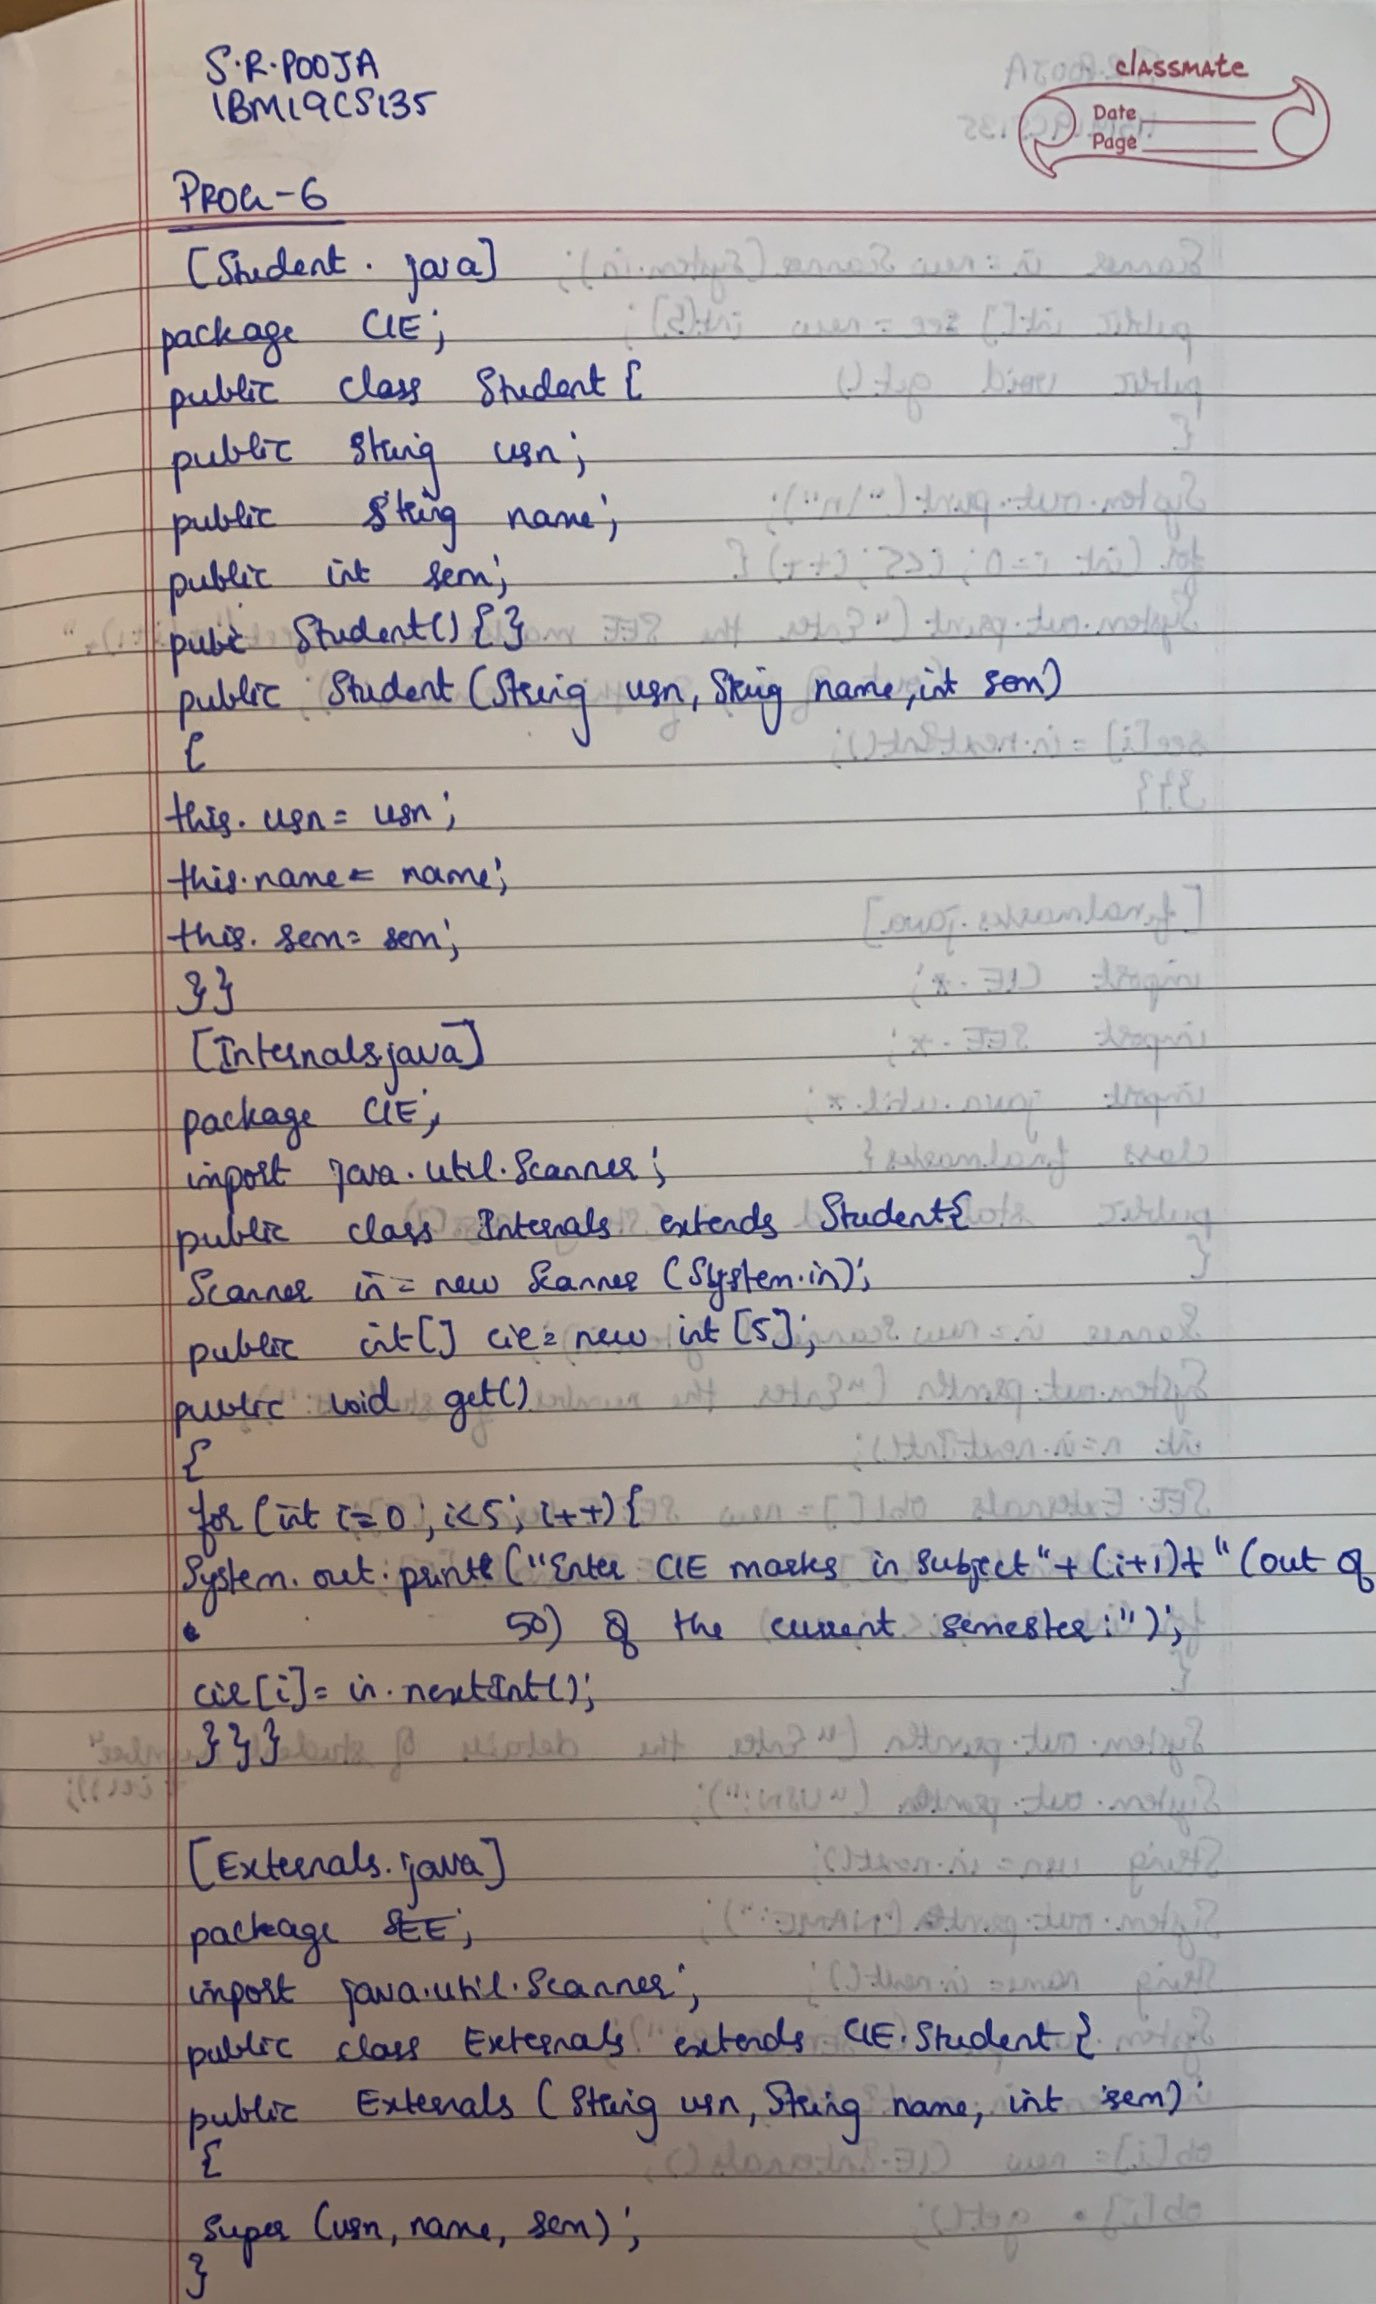 S.R.POOJA
1BM19CS135
classmate
Date
Page
PROG-6
[Student.java]
package CIE;
public class Student {
public String usn;
public String name;
public int sem;
pubic Student() { }
public Student (String usn, String name, int sem)
{
this.usn = usn;
this.name = name;
this.sem = sem;
}}
[Internals.java]
package CIE;
import java.util.Scanner;
public class Internals extends Student{
Scanner in = new Scanner (System.in);
public int[] cie = new int [5];
public void get()
{
for (int i=0; i<5; i++) {
System.out.print ("Enter CIE marks in subject" + (i+1) + " (out of
50) of the current semester:");
cie[i] = in.nextInt();
}}}
[Externals.java]
package SEE;
import java.util.Scanner;
public class Externals extends CIE.Student {
public Externals (String usn, String name, int sem)
{
super (usn, name, sem);
}